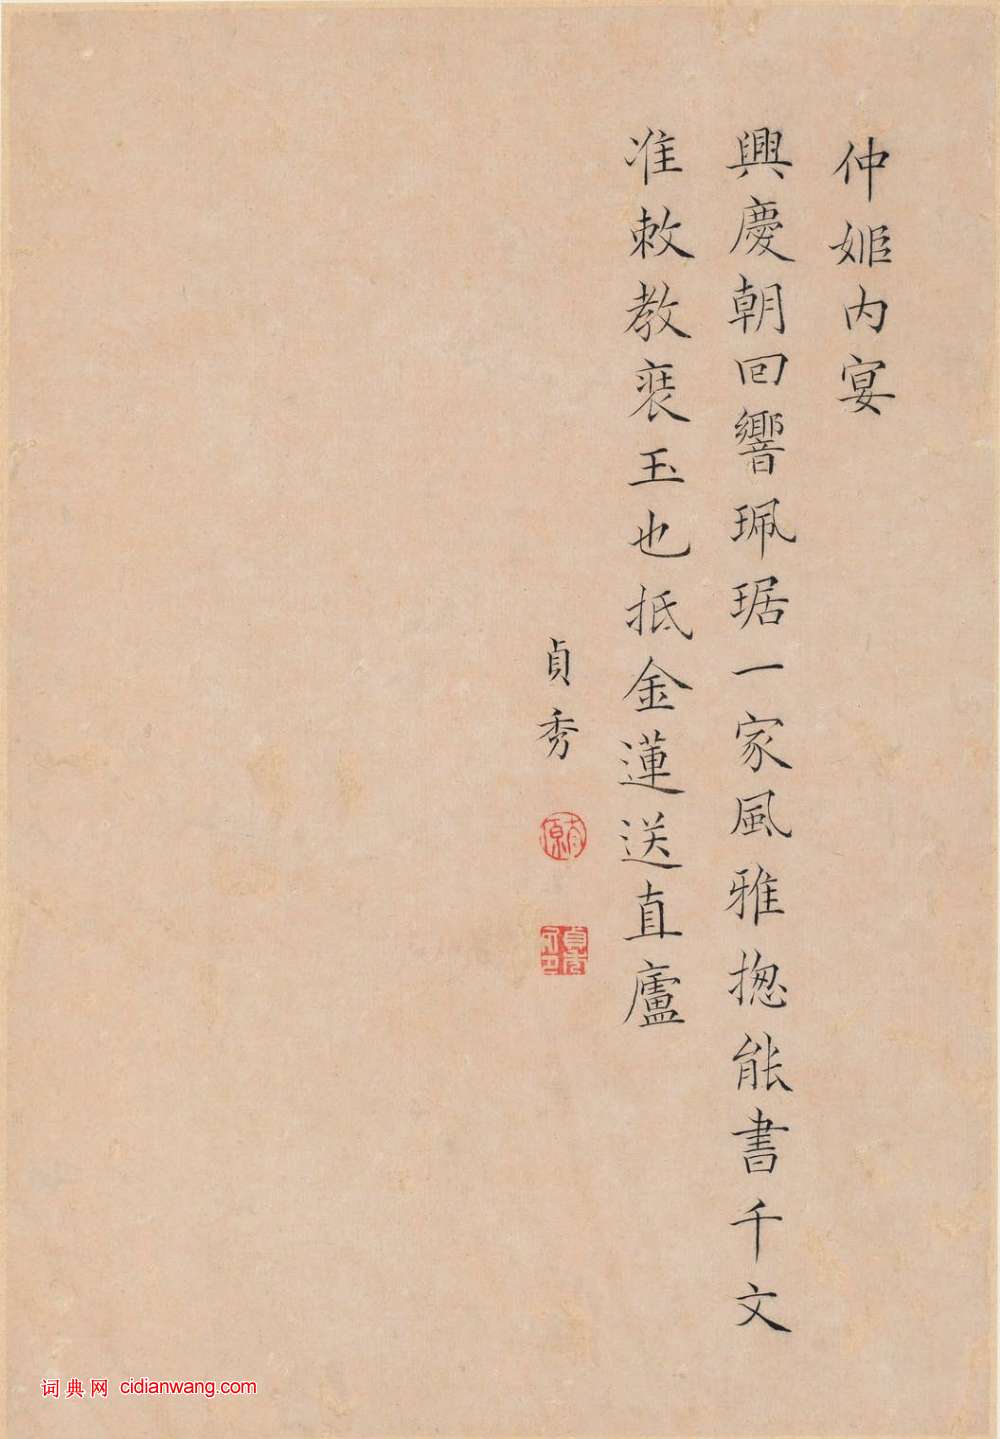 仲姬内宴
興慶朝回響珮琚一家風雅揔能書千文
准敕教裝玉也抵金蓮送直廬
貞秀
貞秀
词典网 cidianwang.com